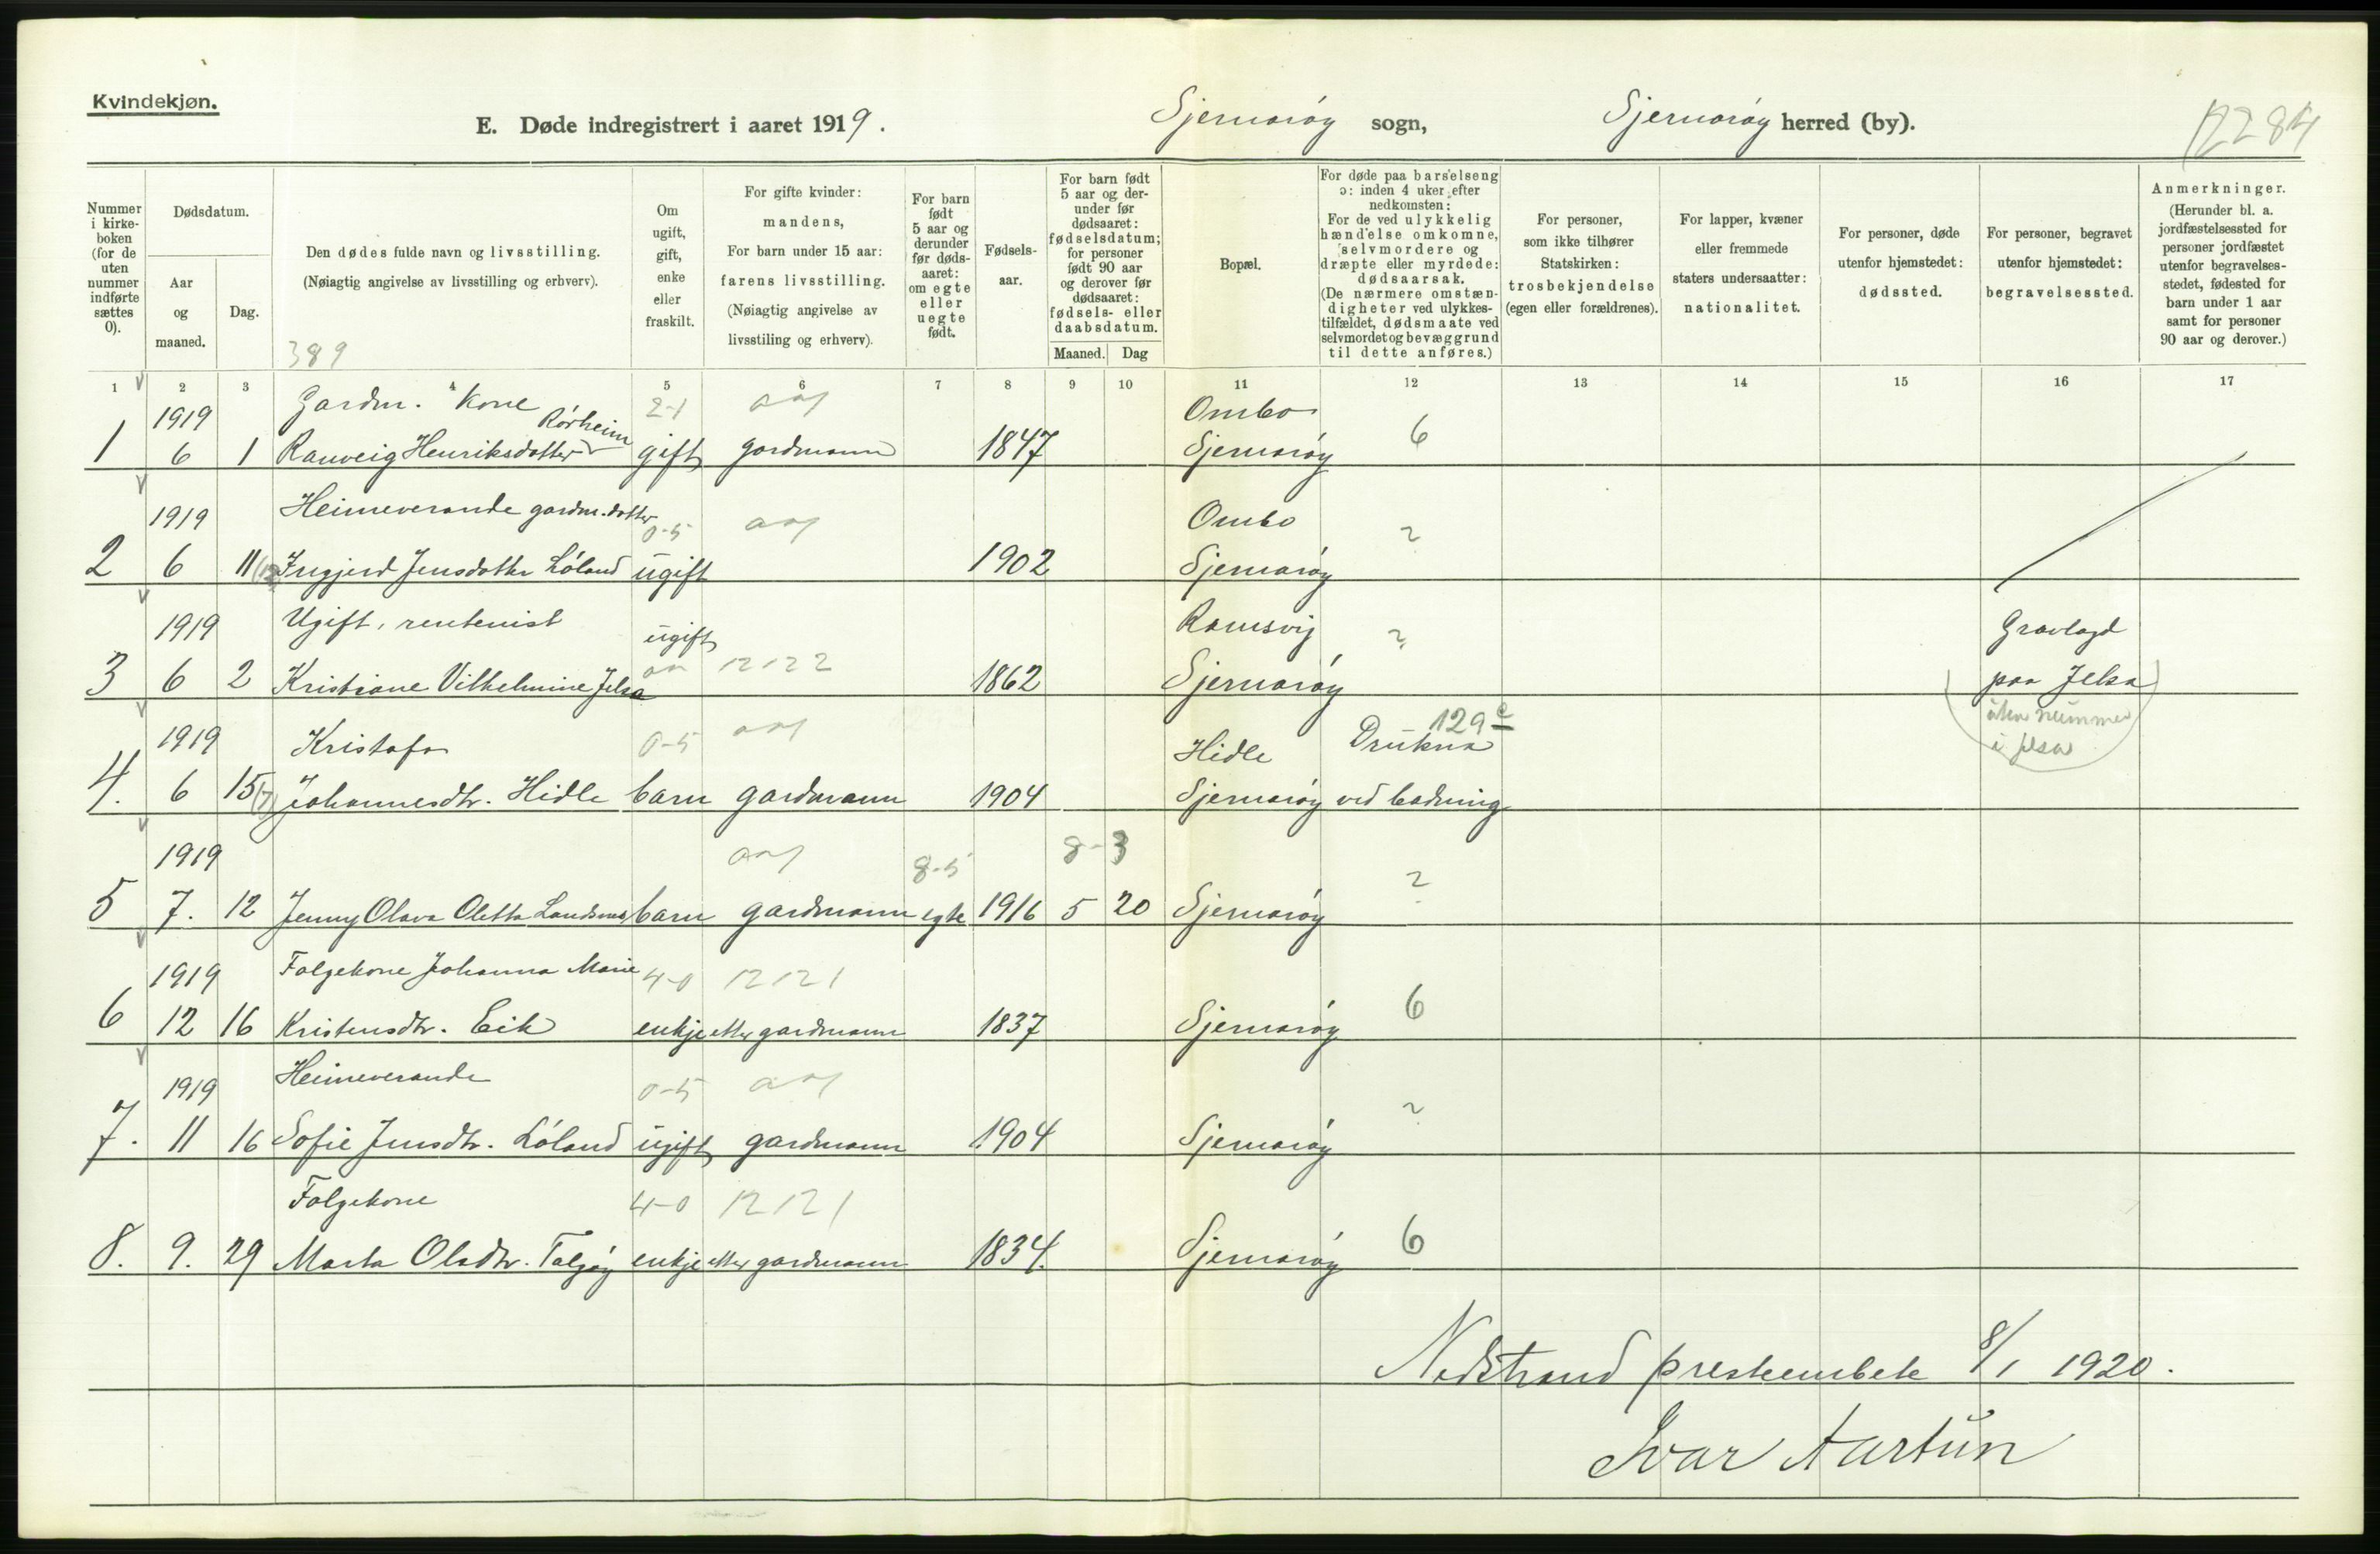 Kvindekjøn.
E. Døde indregistrert i aaret 1919. Sjernarøy sogn, Sjernarøy herred (by).
2284
Nummer i kirke-boken (for de uten nummer indførte sættes 0).
Dødsdatum.
Aar og maaned.
Dag.
Den dødes fulde navn og livsstilling.
(Nøiagtig angivelse av livsstilling og erhverv).
389
Om ugift, gift, enke eller fraskilt.
For gifte kvinder: mandens, For barn under 15 aar: farens livsstilling. (Nøiagtig angivelse av livsstiling og erhverv).
For barn født 5 aar og derunder før døds-aaret: om egte eller uegte født.
Fødsels-aar.
For barn født 5 aar og der-under før dødsaaret: fødselsdatum; for personer født 90 aar og derover før dødsaaret: fødsels- eller daabsdatum.
Maaned. Dag
Bopæl.
For døde paa barselseng ɔ: inden 4 uker efter nedkomsten: For de ved ulykkelig hændelse omkomne, selvmordere og dræpte eller myrdede: dødsaarsak. (De nærmere omstæn-digheter ved ulykkes-tilfældet, dødsmaate ved selvmordet og bevæggrund til dette anføres.)
For personer, som ikke tilhører Statskirken: trosbekjendelse (egen eller forældrenes).
For lapper, kvæner eller fremmede staters undersaatter: nationalitet.
For personer, døde utenfor hjemstedet: dødssted.
For personer, begravet utenfor hjemstedet: begravelsessted.
Anmerkninger. (Herunder bl. a. jordfæstelsessted for personer jordfæstet utenfor begravelses-stedet, fødested for barn under 1 aar samt for personer 90 aar og derover.)
1 2 3 4 5 6 7 8 9 10 11 12 13 14 15 16 17
1919 Gardm. kone Rørheim 2-1 Ombo
1 6 1 Ranveig Henriksdotter gift gardmann 1847 Sjernarøy 6
1919 Heimeverande gardm. dotter 0-5 Ombo ?
2 6 11 Ingjerd Jensdotter Løland ugift 1902 Sjernarøy
1919 Ugift, rentenist ugift Ramsvig ? Gravlagd
3 6 2 Kristiane Vilhelmine Jelsa 12122 1862 Sjernarøy paa Jelsa
uten nummer
i Jelsa
1919 Kristofa 0-5 Hidle Drukna 129 c
4. 6 15 (7) Johannesdtr. Hidle barn gardmann 1904 Sjernarøy ved badning
1919 8-5 8-3
5 7. 12 Jenny Olava Oletta Landsnes barn gardmann egte 1916 5 20 Sjernarøy ?
1919 Folgekone Johanna Marie 4-0 12121
6 12 16 Kristensdtr. Eik enkje etter gardmann 1837 Sjernarøy 6
1919 Heimeverande 0-5
7. 11 16 Sofie Jensdtr. Løland ugift gardmann 1904 Sjernarøy ?
Folgekone 4-0 12121
8. 9. 29 Marta Olsdtr. Talgøy enkje etter gardmann 1834. Sjernarøy 6
Nedstrand prestembete 8/1 1920.
Ivar Aartun